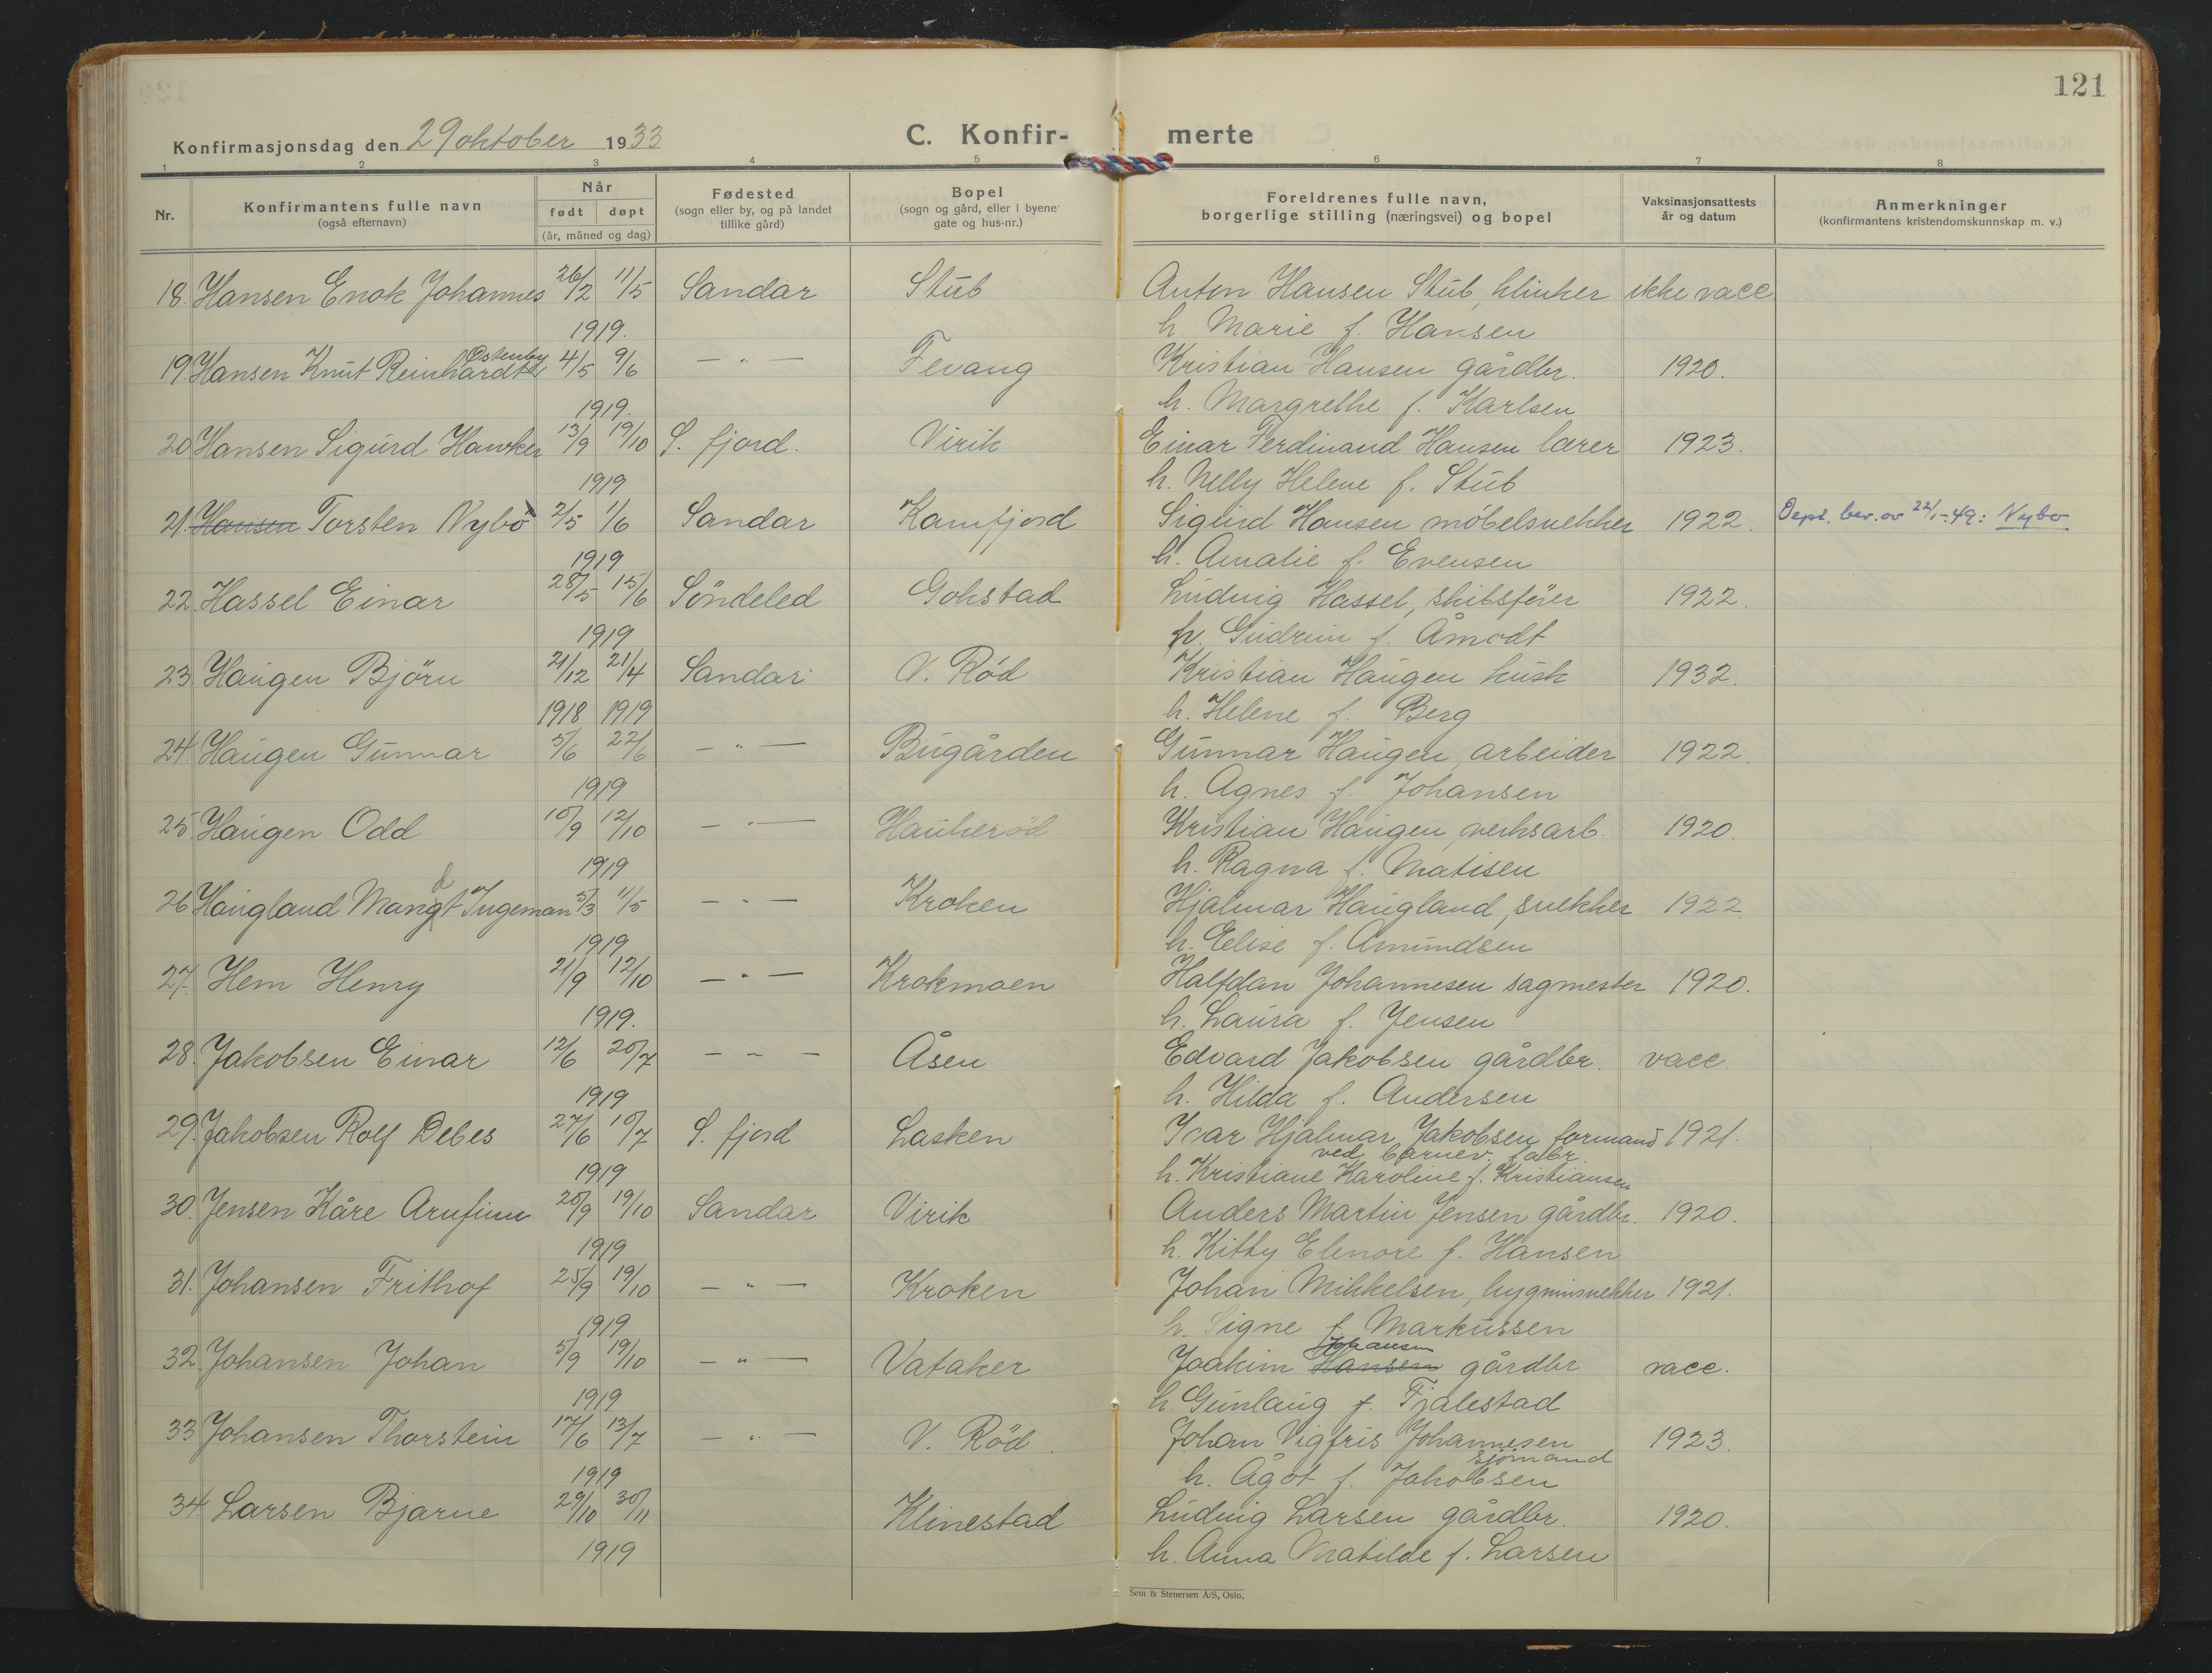 121
Konfirmasjonsdag den 29 oktober 1933 C. Konfir- merte
1 2 3 4 5 6 7 8
Nr. Konfirmantens fulle navn (også efternavn) Når født døpt (år, måned og dag) Fødested (sogn eller by, og på landet tillike gård) Bopel (sogn og gård, eller i byene gate og hus-nr.) Foreldrenes fulle navn, borgerlige stilling (næringsvei) og bopel Vaksinasjonsattests år og datum Anmerkninger (konfirmantens kristendomskunnskap m. v.)
18. Hansen Enok Johannes 26/2 11/5 Sandar Stub Anton Hansen Stub, klinker ikke vacc.
1919. h. Marie f. Hansen
19. Hansen Knut Reinhardt Østenby 4/5 9/6 — " — Fevang Kristian Hansen gårdbr. 1920.
1919. h. Margrethe f. Karlsen
20 Hansen Sigurd Hawker 13/9 19/10 S. fjord. Virik Einar Ferdinand Hansen lærer 1923.
1919 h. Nelly Helene f. Stub
21. Hansen Torsten Nybø 2/5 1/6 Sandar Kamfjord Sigurd Hansen möbelsnekker 1922. Dept. bev. av 22/1-49: Nybø
1919 h. Amalie f. Evensen
22. Hassel Einar 28/5 15/6 Söndeled Gokstad Ludvig Hassel, skibsförer 1922.
1919 h. Gudrun f. Åmodt
23. Haugen Björn 21/12 21/4 Sandar V. Röd Kristian Haugen kusk 1932.
1918 1919 h. Helene f. Berg
24. Haugen Gunnar 5/6 22/6 — " — Bugården Gunnar Haugen, arbeider 1922.
1919 h. Agnes f. Johansen
25. Haugen Odd 10/9 12/10 — " — Haukeröd Kristian Haugen, verksarb. 1920.
1919 h. Ragna f. Matisen
26 Haugland Mangdt Ingeman 5/3 11/5 — " — Kroken Hjalmar Haugland, snekker 1922
1919 h. Elise f. Amundsen
27. Hem Henry 21/9 12/10 — " — Krokmoen Halfdan Johannesen sagmester 1920.
1919. h. Laura f. Jensen
28. Jakobsen Einar 12/6 20/7 — " — Åsen Edvard Jakobsen gårdbr. vacc.
1919 h. Hilda f. Andersen
29. Jakobsen Rolf Debes 27/6 10/7 S. fjord Lasken Ivar Hjalmar Jakobsen formand 1921.
ved fabr.
1919 h. Kristiane Karoline f. Kristiansen
30. Jensen Kåre Arnfinn 20/9 19/10 Sandar Virik Anders Martin Jensen gårdbr. 1920.
1919 h. Kitty Elenore f. Hansen
31. Johansen Frithof 25/9 19/10 — " — Kroken Johan Mikkelsen, 1921.
1919 h. Signe f. Markussen
32. Johansen Johan 5/9 19/10 — " — Vataker Joakim Hansen Johansen gårdbr vacc.
1919 h. Gunlaug f. Fjalestad
33 Johansen Thorstein 17/6 13/7 — " — V. Röd. Johan Vigfris Johannesen sjömand 1923.
1919 h. Ågot f. Jakobsen
34. Larsen Bjarne 29/10 30/11 Klinestad Ludvig Larsen gårdbr. 1920.
1919 h. Anna Matilde f. Larsen
Sem & Stenersen A/S, Oslo.